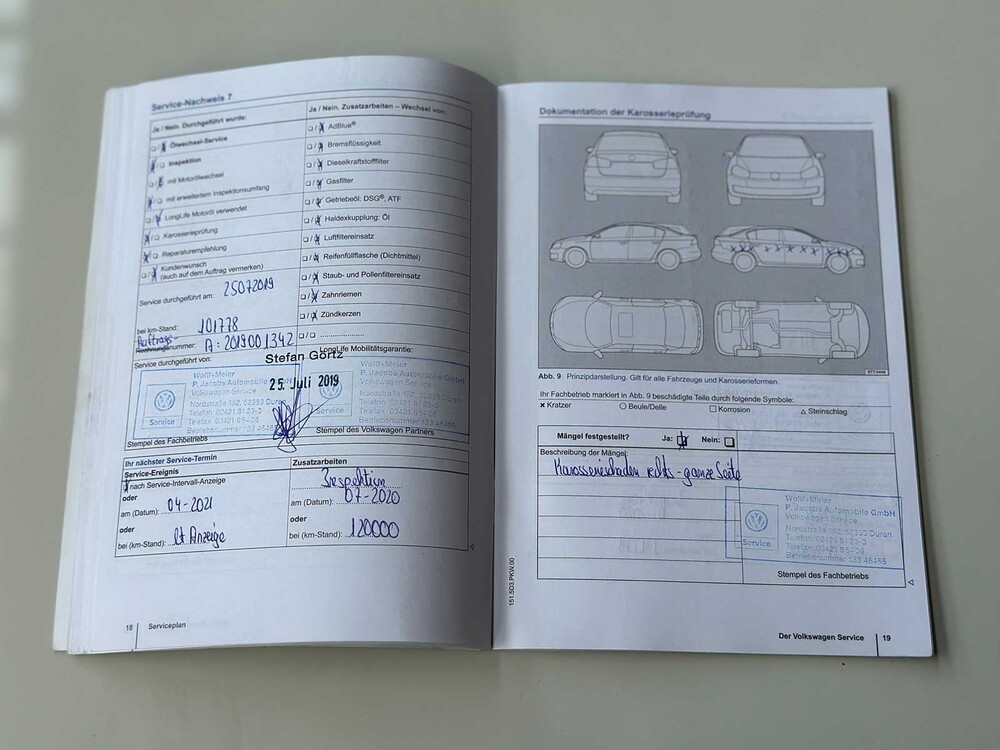 Service-Nachweis 7
Ja / Nein. Durchgeführt wurde:
Ölwechsel-Service
Inspektion
mit Motorölwechsel
mit erweitertem Inspektionsumfang
LongLife Motoröl verwendet
Karosserieprüfung
Reparaturempfehlung
Kundenwunsch
(auch auf dem Auftrag vermerken)
Service durchgeführt am: 25072019
bei km-Stand: 101778
Auftrags-
Rechnungsnummer: A: 2019001342
Service durchgeführt von:
Ja / Nein. Zusatzarbeiten – Wechsel von:
AdBlue®
Bremsflüssigkeit
Dieselkraftstofffilter
Gasfilter
Getriebeöl: DSG®, ATF
Haldexkupplung: Öl
Luftfiltereinsatz
Reifenfüllflasche (Dichtmittel)
Staub- und Pollenfiltereinsatz
Zahnriemen
Zündkerzen
LongLife Mobilitätsgarantie:
Stefan Görtz
25. Juli 2019
Wolff+Meier
P. Jacobs Automobile
Volkswagen Service
Nordstraße 152, 52353 Düren
Service
Stempel des Fachbetriebs
Stempel des Volkswagen Partners
Ihr nächster Service-Termin
Service-Ereignis
nach Service-Intervall-Anzeige
oder
am (Datum): 04-2021
oder
bei (km-Stand): lt Anzeige
Zusatzarbeiten
Inspektion
am (Datum): 07-2020
oder
bei (km-Stand): 120000
18 Serviceplan
Dokumentation der Karosserieprüfung
Abb. 9 Prinzipdarstellung. Gilt für alle Fahrzeuge und Karosserieformen.
Ihr Fachbetrieb markiert in Abb. 9 beschädigte Teile durch folgende Symbole:
× Kratzer ○ Beule/Delle □ Korrosion △ Steinschlag
Mängel festgestellt? Ja: Nein:
Beschreibung der Mängel:
Karosserieschaden rechts - ganze Seite
Wolff+Meier
P. Jacobs Automobile GmbH
Volkswagen Service
Nordstraße 152, 52353 Düren
Service
Stempel des Fachbetriebs
151.5D3.PKW.00
Der Volkswagen Service 19